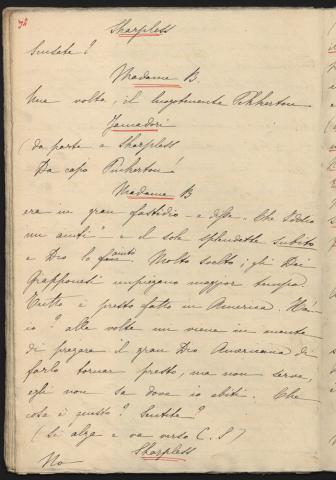 74
Sharpless
Sensate?
Madame B.
Una volta, il luogotenente Pinkerton
Yamadori
(da parte a Sharpless
Da capo Pinkerton!
Madame B
era in gran fastidio – e disse "Che Iddio
mi aiuti" – e il sole splendette subito
e Dio lo Molto svelto; gli Dei
Giapponesi impiegano maggior tempo.
Tutto è presto fatto in America.
io? alla volte mi viene in mente
di pregare il gran Dio Americano di
farlo tornar presto, ma non serve,
egli non sa dove io abiti. Che
cosa è questo? Sentite?
(Si alza e va verso C. S)
Sharpless
No